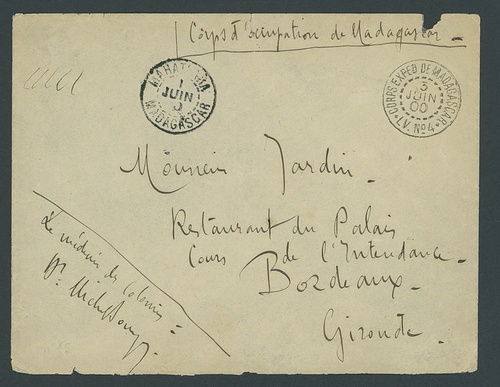 Corps d'occupation de Madagascar
MAHATSARA
JUIN
MADAGASCAR
CORPS EXPED. DE MADAGASCAR
3
JUIN
00
LV. Nº4
Monsieur Jardin
Restaurant du Palais
Cours de l'Intendance
Bordeaux
Gironde
Le médecin des Colonies
Dr